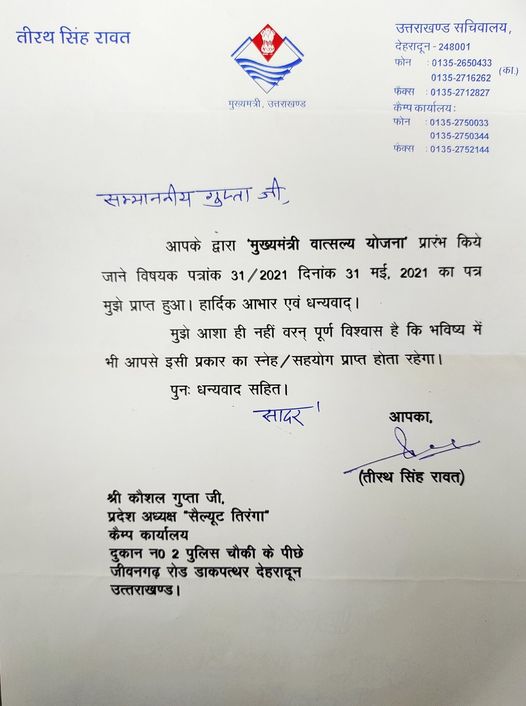 तीरथ सिंह रावत
मुख्यमंत्री, उत्तराखण्ड
उत्तराखण्ड सचिवालय,
देहरादून - 248001
फोन : 0135-2650433
0135-2716262 (का.)
फैक्स : 0135-2712827
कैम्प कार्यालय :
फोन : 0135-2750033
0135-2750344
फैक्स : 0135-2752144
सम्माननीय गुप्ता जी,
आपके द्वारा 'मुख्यमंत्री वात्सल्य योजना' प्रारंभ किये
जाने विषयक पत्रांक 31/2021 दिनांक 31 मई, 2021 का पत्र
मुझे प्राप्त हुआ। हार्दिक आभार एवं धन्यवाद्।
मुझे आशा ही नहीं वरन् पूर्ण विश्वास है कि भविष्य में
भी आपसे इसी प्रकार का स्नेह/सहयोग प्राप्त होता रहेगा।
पुनः धन्यवाद सहित।
सादर।
आपका,
(तीरथ सिंह रावत)
श्री कौशल गुप्ता जी,
प्रदेश अध्यक्ष "सैल्यूट तिरंगा"
कैम्प कार्यालय
दुकान न0 2 पुलिस चौकी के पीछे
जीवनगढ़ रोड डाकपत्थर देहरादून
उत्तराखण्ड।